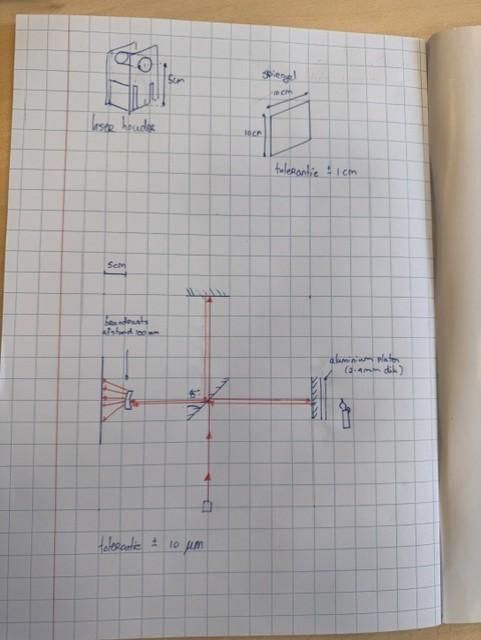 5cm
laser houder
spiegel
10cm
10cm
tolerantie ± 1cm
5cm
brandpunts
afstand 100mm
aluminium platen
(2-4mm dik)
45°
tolerantie ± 10 µm